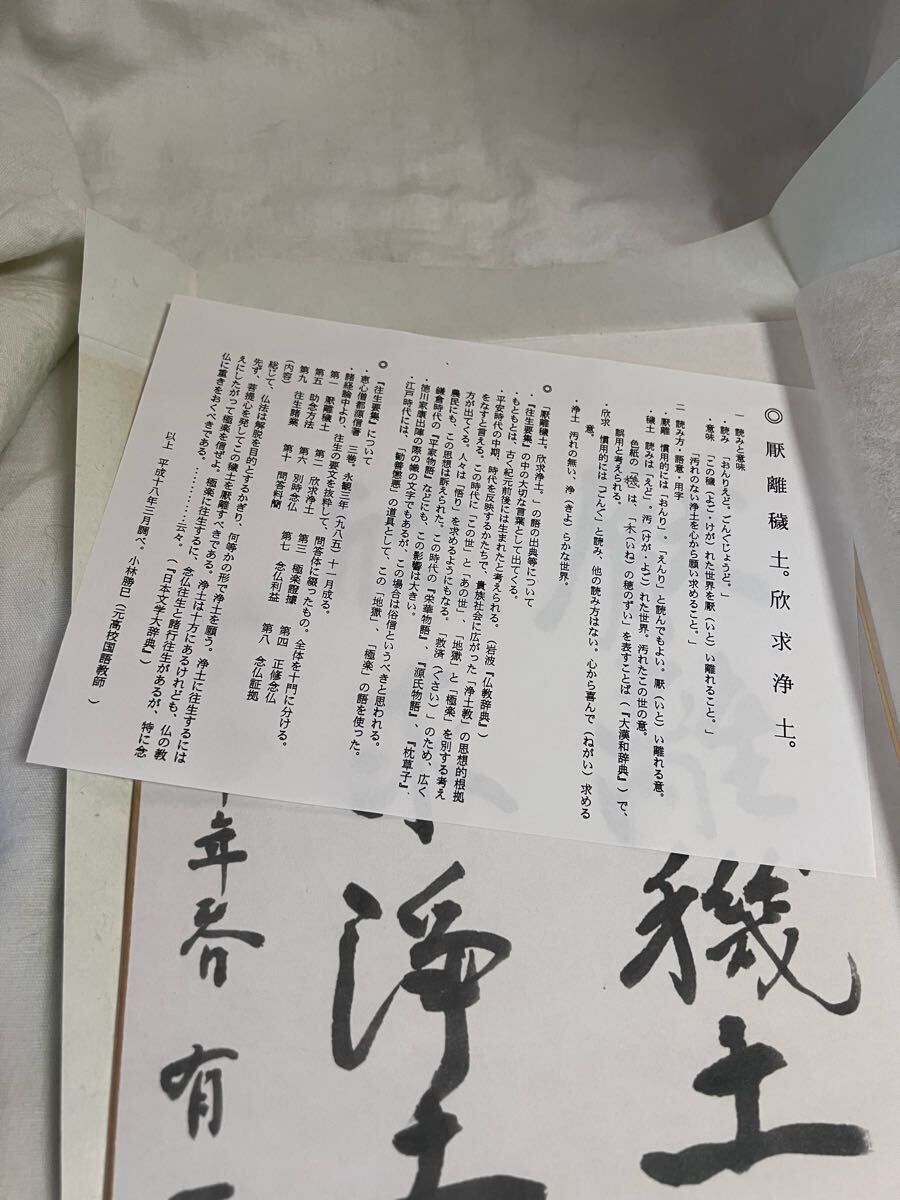 ◎ 厭離穢土。欣求浄土。
一 読みと意味
・読み 「おんりえど。ごんぐじょうど。」
・意味 「この穢（よご・けが）れた世界を厭（いと）い離れること。」
「汚れのない浄土を心から願い求めること。」
二 読み方・語意・用字
・厭離 慣用的には「おんり」。「えんり」と読んでもよい。厭（いと）い離れる意。
・穢土 読みは「えど」。汚（けが・よご）れた世界。汚れたこの世の意。
色紙の「穖」は、「禾（いね）の穂のずい」を表すことば（『大漢和辞典』）で、
誤用と考えられる。
・欣求 慣用的には「ごんぐ」と読み、他の読み方はない。心から喜んで（ねがい）求める
意。
・浄土 汚れの無い、浄（きよ）らかな世界。
◎ 「厭離穢土。欣求浄土。」の語の出典等について
・『往生要集』の中の大切な言葉として出てくる。
・もともとは、古く紀元前後には生まれたと考えられる。（岩波『仏教辞典』）
・平安時代の中期、時代を反映するかたちで、貴族社会に広がった「浄土教」の思想的根拠
をなすと言える。この時代に「この世」と「あの世」、「地獄」と「極楽」を別する考え
方が出てくる。人々は「悟り」を求めるようにもなる。「救済（くさい）」のため、広く
農民にも、この思想は訴えられた。この時代の『栄華物語』、『源氏物語』、『枕草子』、
鎌倉時代の『平家物語』などにも、この影響は大きい。
・徳川家康出陣の際の幟の文字でもあるが、この場合は俗信というべきと思われる。
・江戸時代には、「勧善懲悪」の道具として、この「地獄」、「極楽」の語を使った。
◎ 『往生要集』について
・恵心僧都源信著 三巻。永観三年（九八五）十一月成る。
・諸経論中より、往生の要文を抜粋して、問答体に綴ったもの。全体を十門に分ける。
（内容） 第一 厭離穢土 第二 欣求浄土 第三 極楽證據 第四 正修念仏
第五 助念方法 第六 別時念仏 第七 念仏利益 第八 念仏証拠
第九 往生諸業 第十 問答料簡
総じて、仏法は解脱を目的とするかぎり、何等かの形で浄土を願う。浄土に往生するには
先ず、菩提心を発してこの穢土を厭離すべきである。浄土は十方にあるけれども、仏の教
えにしたがって極楽を信ぜよ。極楽に往生するに、念仏往生と諸行往生があるが、特に念
仏に重きをおくべきである。…………云々。（『日本文学大辞典』）
以上 平成十八年三月調べ。小林勝巳（元高校国語教師 ）
穖土
浄土
年春 有